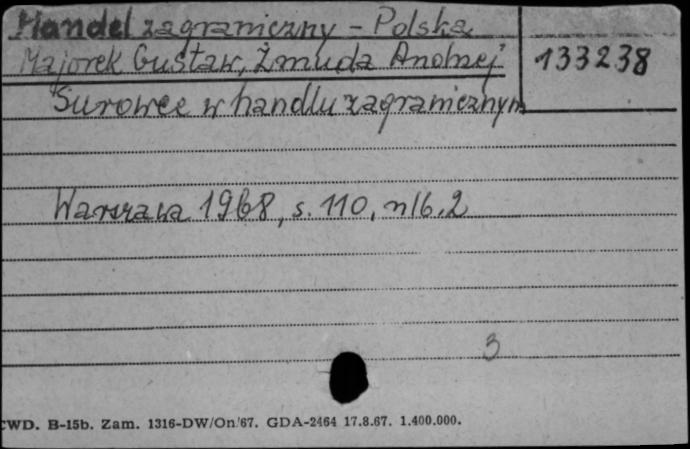 Handel zagraniczny - Polska
Majorek Gustaw, Żmuda Andrzej
133238
Surowce w handlu zagranicznym
Warszawa 1968, s. 110, nlb. 2
3
CWD. B-15b. Zam. 1316-DW/On/67. GDA-2464 17.8.67. 1.400.000.